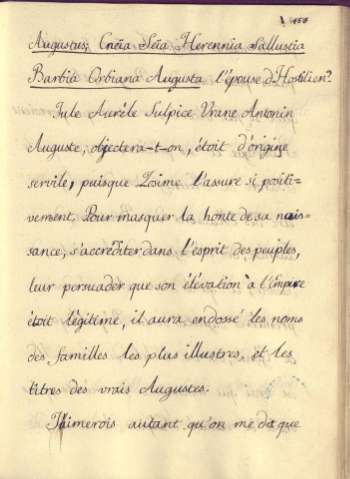 Augustus; Cnëia Sëïa Herennia Sallustia
Barbia Orbiana Augusta l'épouse d'Hostilien?
Jule Auréle Sulpice Urane Antonin
Auguste, objectera-t-on, étoit d'origine
servile, puisque Zosime l'assure si positi-
vement. Pour masquer la honte de sa nais-
sance, s'accréditer dans l'esprit des peuples,
leur persuader que son élévation à l'Empire
étoit légitime, il aura endossé les noms
des familles les plus illustres, et les
titres des vrais Augustes.
J'aimerois autant qu'on me dit que